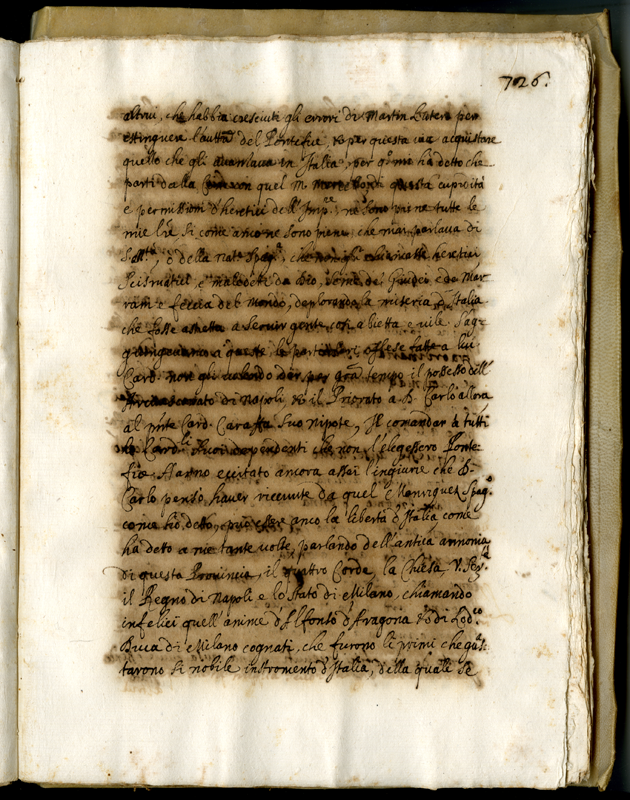 726.
altrui, che habbia cresciuti gli errori di Martin Lutero per
estinguere l'autt.à del Pontefice, et per questa via acquistare
quello che gli avanzava in Italia, per ò mi ha detto che
parti dalla con quel questa cupidità
e permissioni d'heretici dell'Imp.re, ne sono piene tutte le
mie l're si come anco ne sono piene, che mai parlava di
S. M.tà, ò della nat.e Spag.a, che non gli chiamasse heretici
Scismatici, e maledetti da Dio, seme de' Giudei e da Mar-
rani e feccia del mondo, deplorando la miseria d'Italia
che fosse astretta a servir gente così abietta e vile. S'ag-
giungevano a queste le particolari offese fatte a lui
Card. non gli dar per gran tempo il possesso dell'
Arcivescovato di Napoli et il Priorato a D. Carlo allora
al pnte Card. Caraffa suo nipote, Il comandar à tutti
li Card.li suoi dependenti che non l'elegessero Ponte-
fice. Hanno eccitato ancora assai l'ingiurie che D.
Carlo pensò haver ricevute da quel Manriquez Spag.o
come hò detto, può essere anco la libertà d'Italia come
ha detto a me tante volte, parlando dell'antica armonia
di questa Provincia, il quattro Corde, la Chiesa, V. Ser.tà
il Regno di Napoli e lo stato di Milano, chiamando
infelici quell'anime d'Alfonso d'Aragona et di Lod.co
Duca di Milano cognati, che furono li primi che guas-
tarono si nobile instromento d'Italia, della quale se